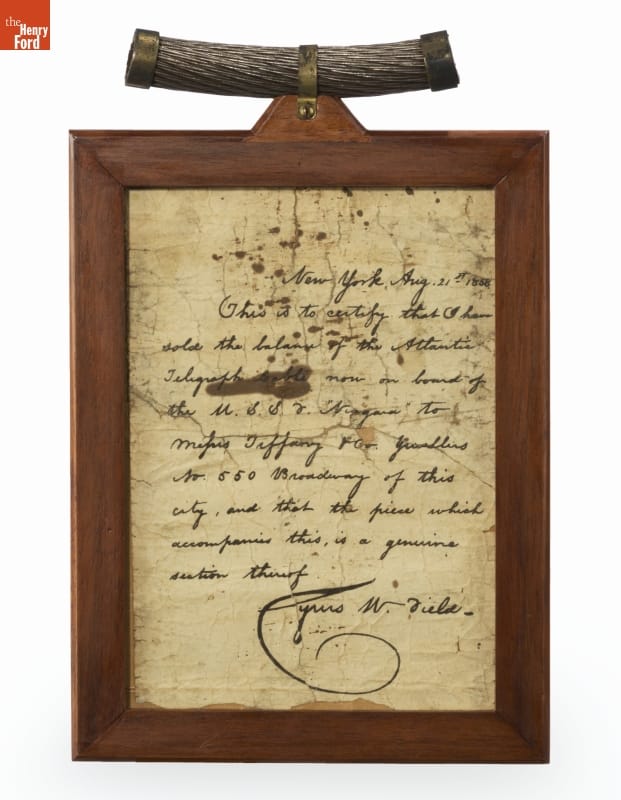 the
Henry
Ford
New York, Aug. 21st 1858
This is to certify that I have
sold the balance of the Atlantic
Telegraph Cable now on board of
the U. S. S. F. "Niagara" to
Messrs Tiffany & Co. Jewellers
No. 550 Broadway of this
city, and that the piece which
accompanies this, is a genuine
section thereof
Cyrus W. Field